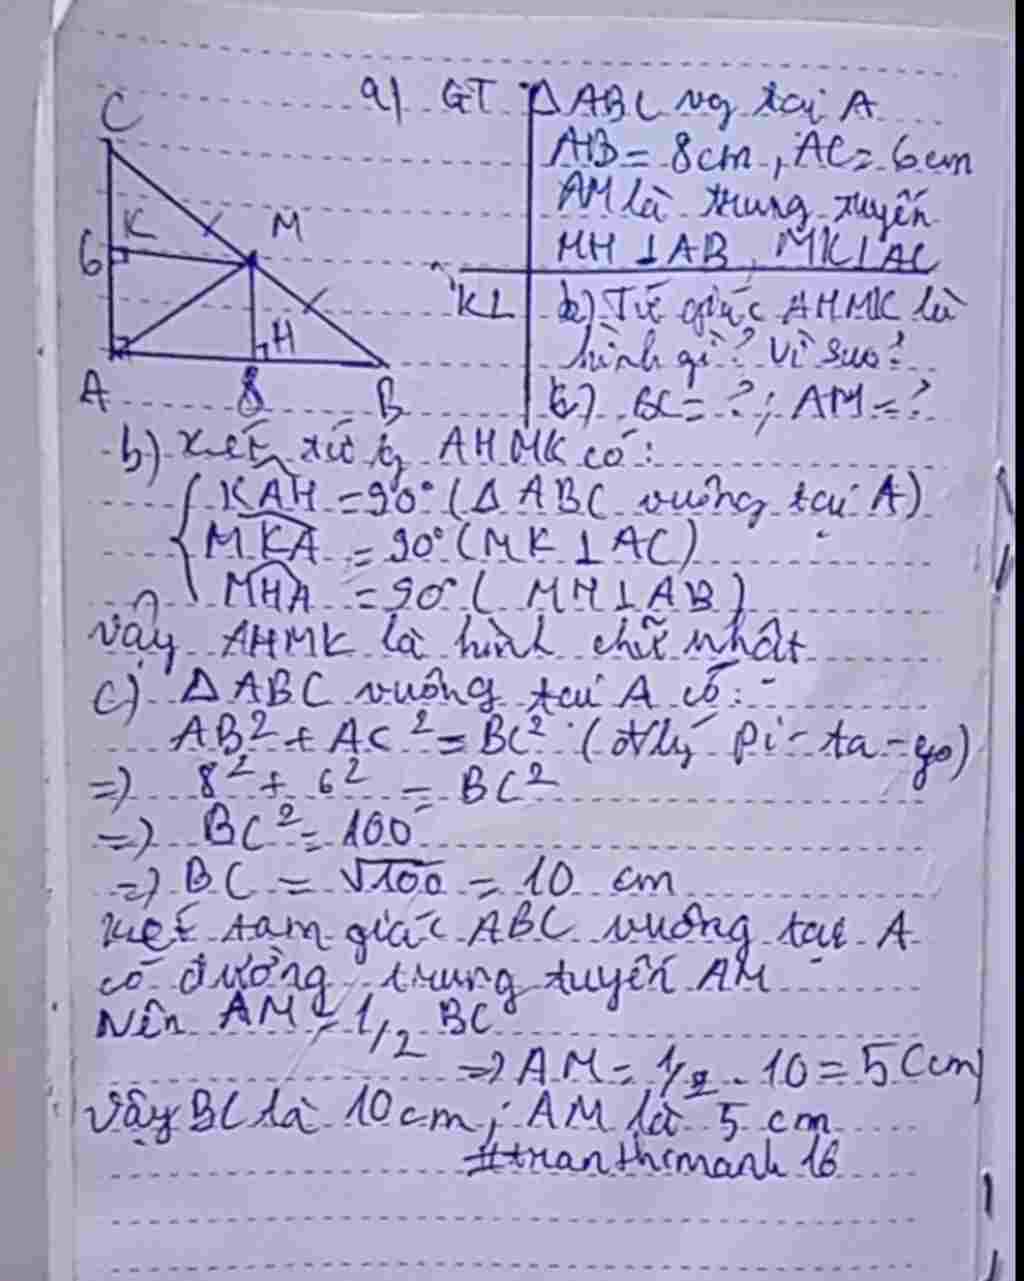 a) GT ΔABC vg tại A
AB = 8cm, AC = 6cm
AM là trung tuyến
MH ⊥ AB, MK ⊥ AC
KL b) Tứ giác AHMK là
hình gì? Vì sao?
c) BC = ?; AM = ?
C
K
M
6
H
A
8
B
b) Xét tứ g AHMK có:
KAH = 90° (Δ ABC vuông tại A)
MKA = 90° (MK ⊥ AC)
MHA = 90° (MH ⊥ AB)
Vậy AHMK là hình chữ nhật
c) Δ ABC vuông tại A có:
AB² + AC² = BC² (đlý Pi-ta-go)
=> 8² + 6² = BC²
=> BC² = 100
=> BC = √100 = 10 cm
Xét tam giác ABC vuông tại A
có đường trung tuyến AM
Nên AM = 1/2 BC
=> AM = 1/2 . 10 = 5 (cm)
Vậy BC là 10cm; AM là 5 cm
#tranthcmanh16